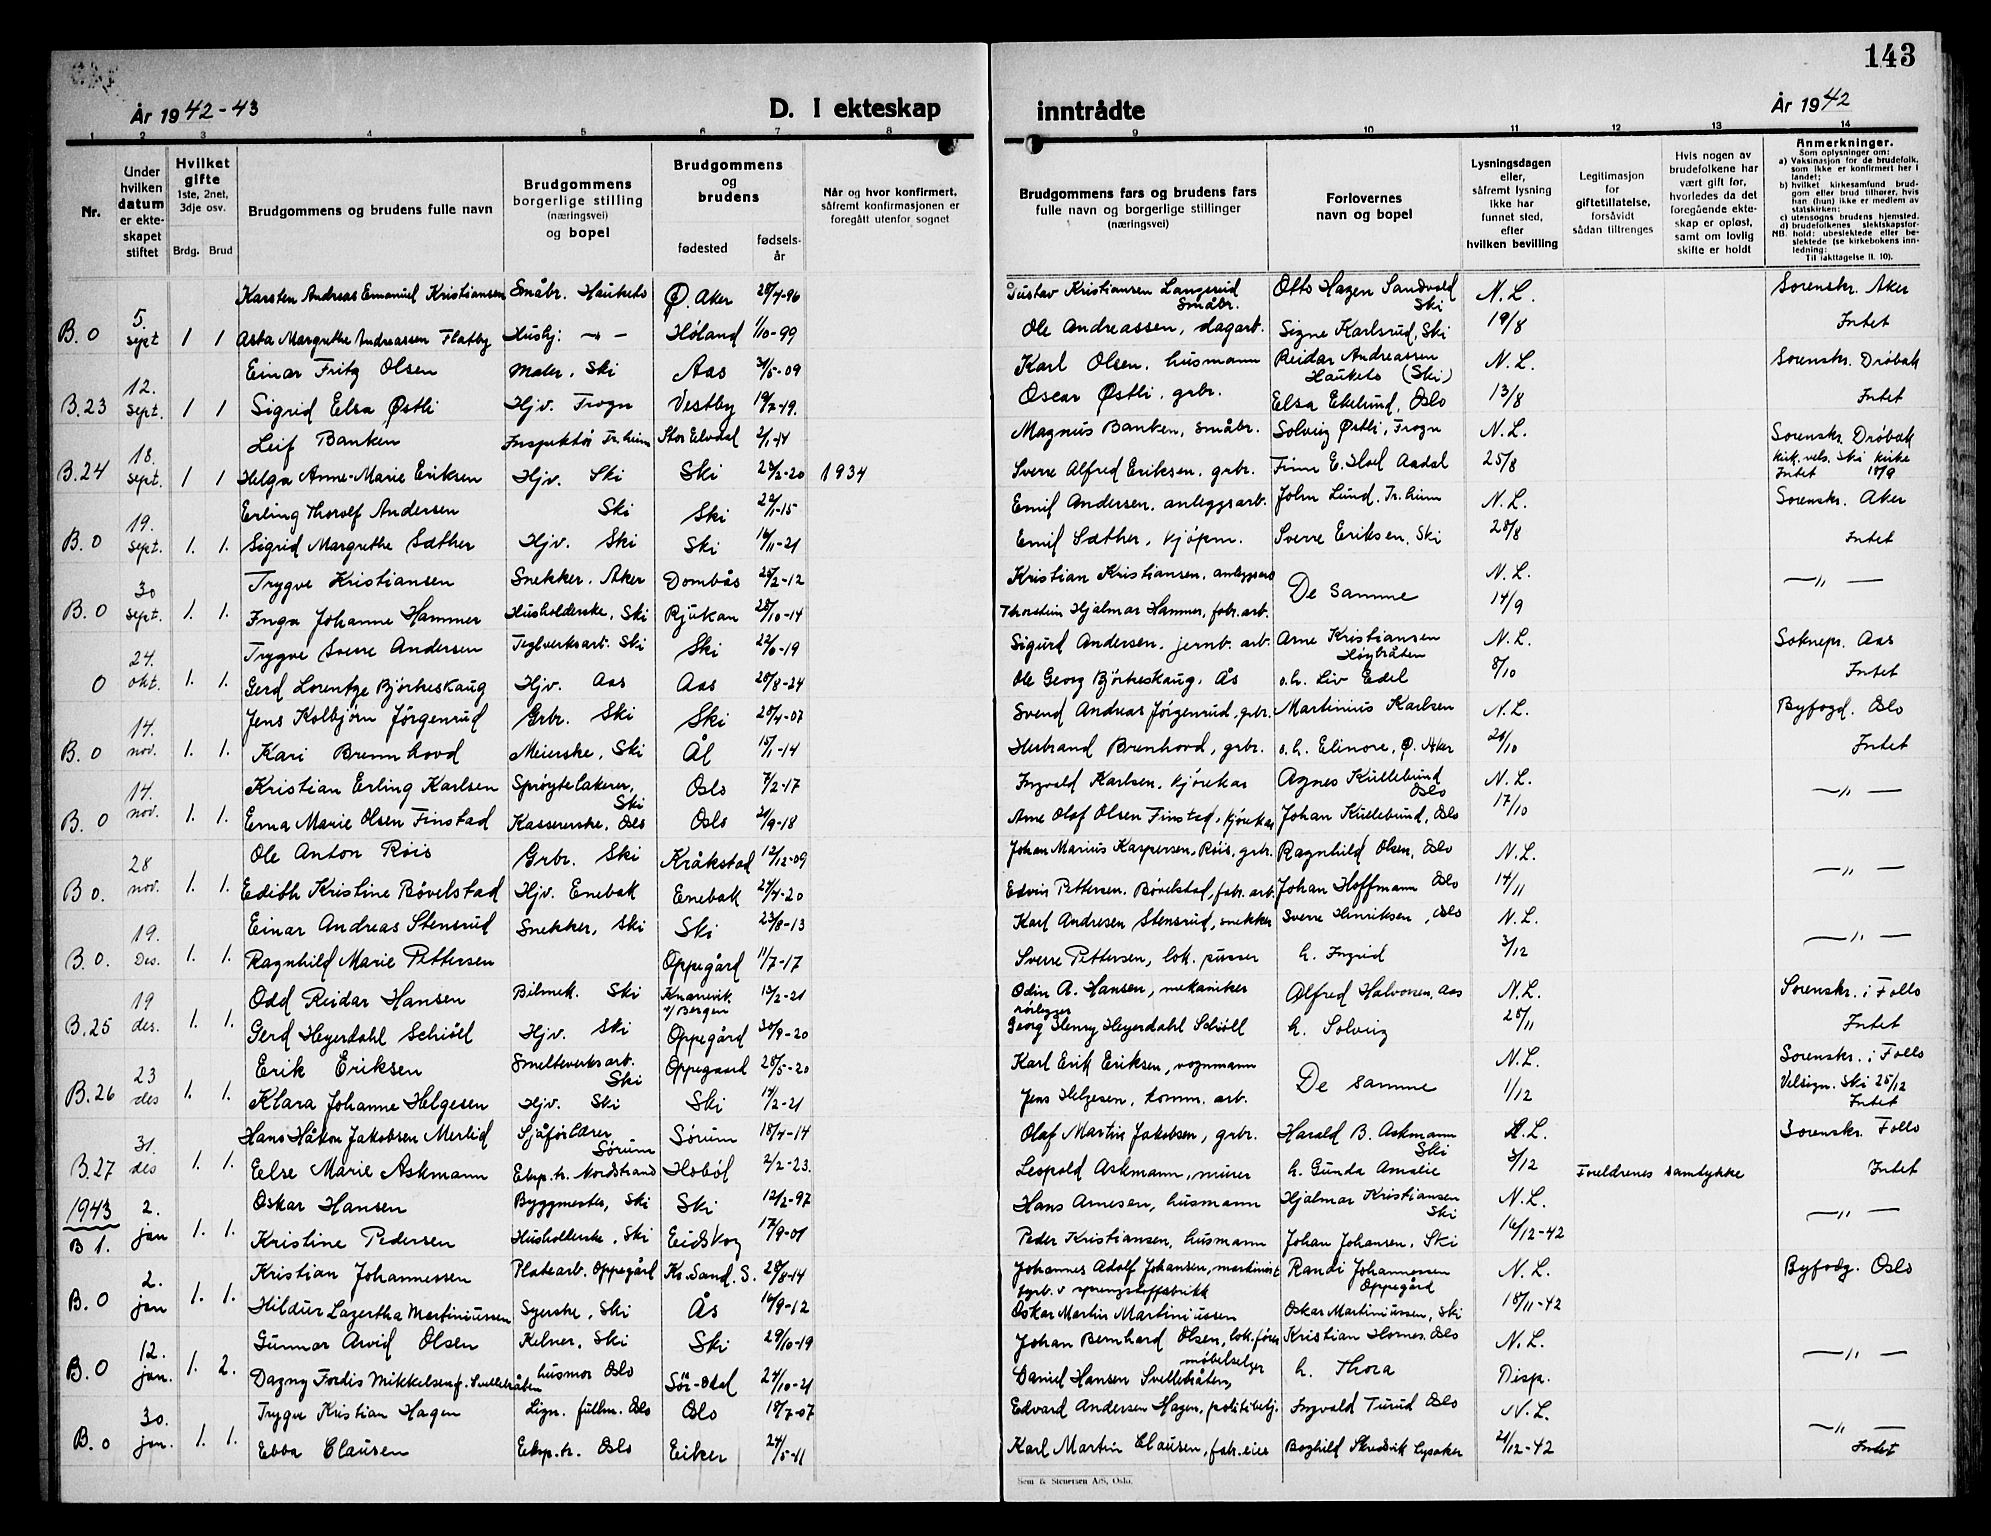 143
År 1942-43
D. I ekteskap inntrådte
År 1942
1 2 3 4 5 6 7 8 9 10 11 12 13 14
Nr.
Under hvilken datum er ekteskapet stiftet
Hvilket gifte
1ste, 2net, 3dje osv.
Brdg. Brud
Brudgommens og brudens fulle navn
Brudgommens borgerlige stilling (næringsvei) og bopel
Brudgommens og brudens
fødested fødselsår
Når og hvor konfirmert, såfremt konfirmasjonen er foregått utenfor sognet
Brudgommens fars og brudens fars fulle navn og borgerlige stillinger (næringsvei)
Forlovernes navn og bopel
Lysningsdagen eller, såfremt lysning ikke har funnet sted, efter hvilken bevilling
Legitimasjon for giftetillatelse, forsåvidt sådan tiltrenges
Hvis nogen av brudefolkene har vært gift før, hvorledes da det foregående ekteskap er opløst, samt om lovlig skifte er holdt
Anmerkninger.
Som oplysninger om:
a) Vaksinasjon for de brudefolk, som ikke er konfirmert her i landet;
b) hvilket kirkesamfund brudgom eller brud tilhører, hvis han (hun) ikke er medlem av statskirken;
c) utensogns brudens hjemsted.
d) brudefolkenes slektskapsforhold: ubeslektede eller beslektede (se kirkebokens innledning:
NB. Til iakttagelse II. 10).
Karsten Andreas Emanuel Kristiansen Småbr. Hauketo Ø. Aker 28/4-96 Gustav Kristiansen Langerud Småbr. Otto Hagen Sandvold Ski N.L. Sorenskr. Aker
B. 0 5. sept 1 1 Asta Margrethe Andreassen Flatby Hushj. -"- Høland 1/10-99 Ole Andreassen, dagarb. Signe Karlsrud, Ski 19/8 Intet
Einar Fritz Olsen Maler, Ski Aas 31/5-09 Karl Olsen, husmann Reidar Andreassen Hauketo (Ski) N.L. Sorenskr. Drøbak
B. 23 12. sept. 1 1 Sigrid Elsa Østli Hjv. Trogn Vestby 19/2-19. Oscar Østli, grbr. Elsa Ekelund, Oslo 13/8 Intet
Leif Banken Inspektør Tr.heim Stor Elvdal 2/1-14 Magnus Banken, småbr. Solveig Østli, Trogn N.L. Sorenskr. Drøbak
B. 24 18. sept. 1 1 Helga Anne-Marie Eriksen Hjv. Ski Ski 23/2-20 1934 Sverre Alfred Eriksen, grbr. Finn E. Hoel Aadal 25/8 kirk. vels. Ski kirke Intet 18/9
Erling Thorolf Andersen Ski Ski 22/1-15 Emil Andersen, anleggsarb. John Lund, Tr.heim N.L. Sorenskr. Aker
B. 0 19. sept. 1. 1. Sigrid Margrethe Sæther Hjv. Ski Ski 16/11-21 Emil Sæther, kjøpm. Sverre Eriksen, Ski 28/8 Intet
Trygve Kristiansen Snekker, Aker Dombås 28/2-12 Kristian Kristiansen, anleggsarb De samme N.L. -"-
B. 0 30 sept. 1. 1. Inga Johanne Hammer Husholderske, Ski Rjukan 28/10-14 Thorstein Hjalmar Hammer, fabr.arb. 14/9
Trygve Sverre Andersen Teglverksarb. Ski Ski 22/6-19 Sigurd Andersen, jernb. arb. Arne Kristiansen Høgbråten N.L. Soknepr. Aas
0 24. okt. 1. 1. Gerd Lorentze Bjørkeskaug Hjv. Aas Aas 20/8-24 Ole Georg Bjørkeskaug, Ås o.h. Liv Edel 8/10 Intet
Jens Kolbjørn Jørgenrud Grbr. Ski Ski 20/4-07 Svend Andreas Jørgenrud, grbr. Martinius Karlsen N.L. Byfogd. Oslo
B. 0 14. nov. 1. 1. Kari Brennhovd Meierske, Ski Ål 15/1-14 Herbrand Brenhovd, grbr. o.h. Elinore, Ø. Aker 20/10 Intet
Kristian Erling Karlsen Sprøytelakerer, Ski Oslo 7/2-17 Ingvald Karlsen, kjørekar Agnes Kullebund Oslo N.L. -"-
B. 0 14. nov. 1. 1. Erna Marie Olsen Finstad Kassererske, Oslo Oslo 21/9-18 Arne Olaf Olsen Finstad, kjørekar Johan Kullebund, Oslo 17/10
Ole Anton Røis Grbr. Ski Kråkstad 12/12-09 Johan Marius Kaspersen, Røis, grbr. Ragnhild Olsen, Oslo N.L. -"-
B 0. 28 nov. 1. 1. Edith Kristine Bøvelstad Hjv. Enebak Enebak 24/4-20 Edvin Pettersen, Bøvelstad, fabr. arb. Johan Hoffmann Oslo 14/11
Einar Andreas Stensrud Snekker, Ski Ski 23/8-13 Karl Andresen Stensrud, snekker Sverre Henriksen, Oslo N.L. -"-
B. 0. 19. Des. 1. 1. Ragnhild Marie Pettersen Oppegård 11/7-17 Sverre Pettersen, lok. pusser h. Ingrid 3/12
Odd Reidar Hansen Bilmek. Ski Knarrevik v/ Bergen 13/2-21 Odin A. Hansen, mekaniker Alfred Halvorsen, Aas N.L. Sorenskr. i Follo
B. 25 19 des. 1. 1. Gerd Heyerdahl Schiøll Hjv. Ski Oppegård 30/9-20 rørlegger Georg Henry Heyerdahl Schiöll h. Solveig 28/11 Intet
Erik Eriksen Smelteverksarb. Ski Oppegaard 28/5-20 Karl Erik Eriksen, vognmann De samme N.L. Sorenskr. i Follo
B. 26 23 des 1. 1. Klara Johanne Helgesen Hjv. Ski Ski 14/2-21 Jens Helgesen, komm. arb. 1/12 Velsign. Ski 25/12 Intet
Hans Håkon Jakobsen Merlid Sjåførlærer Sørum Sørum 18/4-14 Olaf Martin Jakobsen, grbr. Harald B. Askmann Ski N.L. Sorenskr. Follo
B. 27 31. des 1. 1. Else Marie Askmann Eksp.tr. Nordstrand Hobøl 2/2-23. Leopold Askmann, murer h. Gunda Amalie 3/12 Foreldrenes samtykke Intet
1943 2. jan Oskar Hansen Byggmester, Ski Ski 12/2-97 Hans Arnesen, husmann Hjalmar Kristiansen Ski N.L. -"-
B 1. 1. 1. Kristine Pedersen Husholderske, Ski Eidsvog 17/9-01 Peder Kristiansen, husmann Johan Johansen, Ski 16/12-42
Kristian Johannessen Platearb. Oppegård Kr.Sand. S. 28/8-14 Johannes Adolf Johansen, maskinist Randi Johannessen Oppegård N.L. Byfodg. Oslo
B. 0 2. jan 1. 1. Hildur Lazertha Martiniussen Syerske, Ski Ås 16/9-12 fyrb. v sprengstoffabrikk Oskar Martin Martiniussen Oskar Martiniussen, Ski 18/11-42
Gunnar Arvid Olsen Kelner, Ski Ski 29/10-19 Johan Bernhard Olsen, lok.fører Kristian Hornes, Oslo N.L. -"-
B. 0 12. jan. 1. 2. Dagny Fordis Mikkelsen f. Svellebråten husmor Oslo Sør-Odal 24/10-21 Daniel Hansen Svellebråten, møbelselger h. Thora Disp.
Trygve Kristian Hagen Lign. fullm. Oslo Oslo 18/7-07 Edvard Andersen Hagen, politibetj. Ingvald Turud Oslo N.L. -"-
B. 0 30. jan. 1. 1. Ebba Clausen Eksp.tr. Oslo Eiker 24/5-11 Karl Martin Clausen, fabr.eier Boghild Skredsvik Lysaker 21/12-42 Intet
Sem & Stenersen A/S, Oslo.